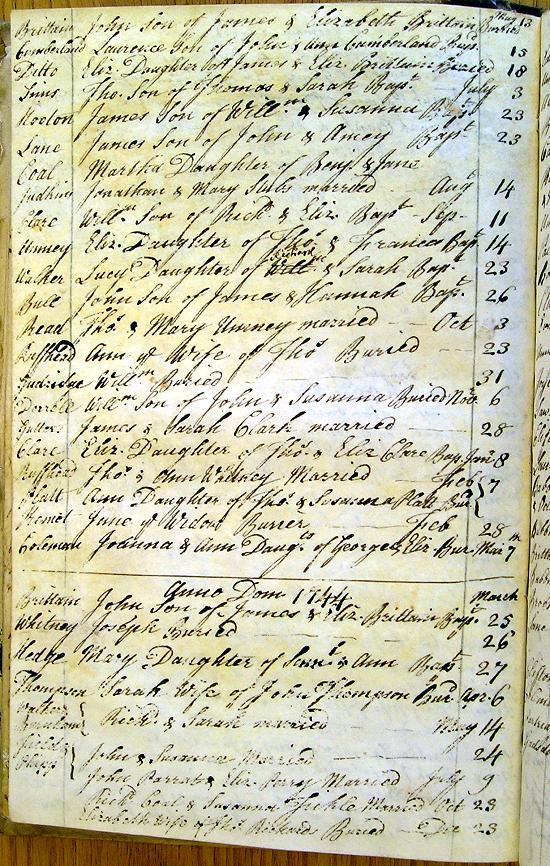 Brittain John Son of James & Elizabeth Brittain Buried May 13
Cumberland Laurence Son of John & Ann Cumberland Bapt. 15
Ditto Eliz. Daughter off James & Eliz. Brittain Buried 18
Inns Tho. Son of Thomas & Sarah Bapt. July 3
James Son of Willm & Susanna Bapt 23
Lane James Son of John & Amey Bapt 23
Coal Martha Daughter of Benj. & Jane
Judkins Jonathan & Mary married Augt 14
Clare Willm Son of Rich. & Eliz. Bapt Sep. 11
Umney Eliz. Daughter of Tho. & Frances Bapt 14
Walker Lucy Daughter of Richard & Sarah Bapt 23
Bull John Son of James & Hannah Bapt. 26
Read Tho.s & Mary Umney married Oct 3
Ruffhead Ann ye Wife of Tho.s Buried 23
Willm Buried 31
Willm Son of John & Susanna Buried Nov. 6
James & Sarah Clark married 28
Clare Eliz. Daughter of Tho.s & Eliz Clare Bap. Jan 8
Ruffhead Tho.s & Ann Whitney Married Feb 7
Platt Ann Daughter of Tho.s & Susanna Platt Bur.
Kemot Jane ye Widow Burier Feb 28
Coleman Joanna & Ann Daug.ts of George & Eliz. Bur. Mar 7th
Anno Dom 1744
Brittain John Son of James & Eliz. Brittain Bapt. March 25
Whitney Joseph Buried 26
Hedge Mary Daughter of & Ann Bapt 27
Thompson Sarah Wife of John Thompson Bur. Apr. 6
Walter
Rich.d & Sarah married May 14
Fields
Phipps John & Susanna Married 24
John Parrat & Eliz. Perry Married July 9
Rich Coal & Susanna Fickle Married Oct 23
Elizabeth Wife of Tho.s Richards Buried Dec 23